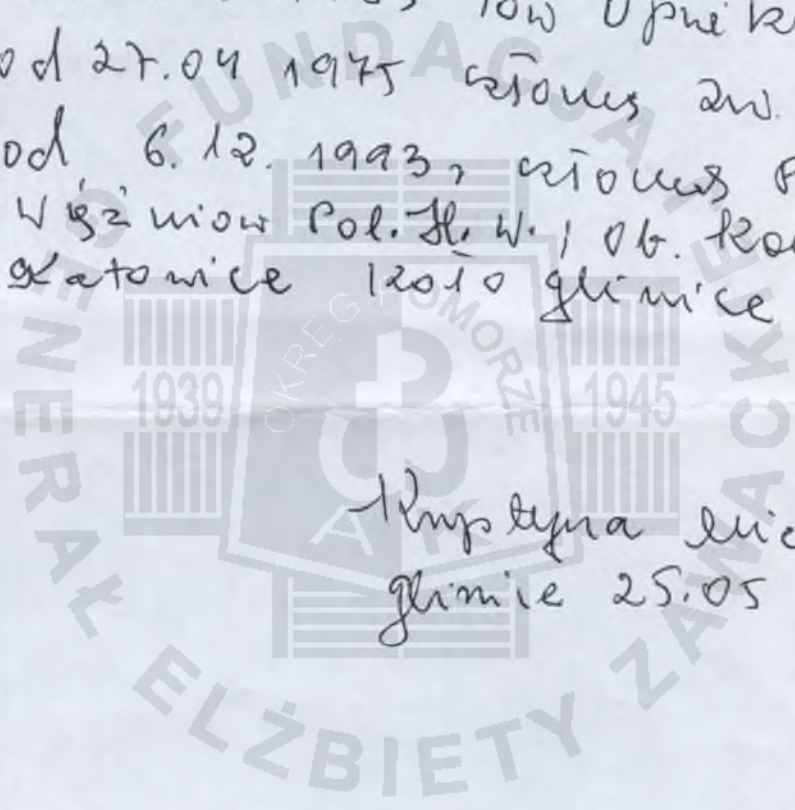 Tow Opieki
od 27.04 1975 członek zw.
od 6.12. 1993, członek
Więźniow Pol. H. W. i Ob. Ko
Katowice Koło Gliwice
Krystyna
Gliwice 25.05
FUNDACJA GENERAŁ ELŻBIETY ZAWACKIEJ
OKRĘG POMORZE
1939
1945
AK